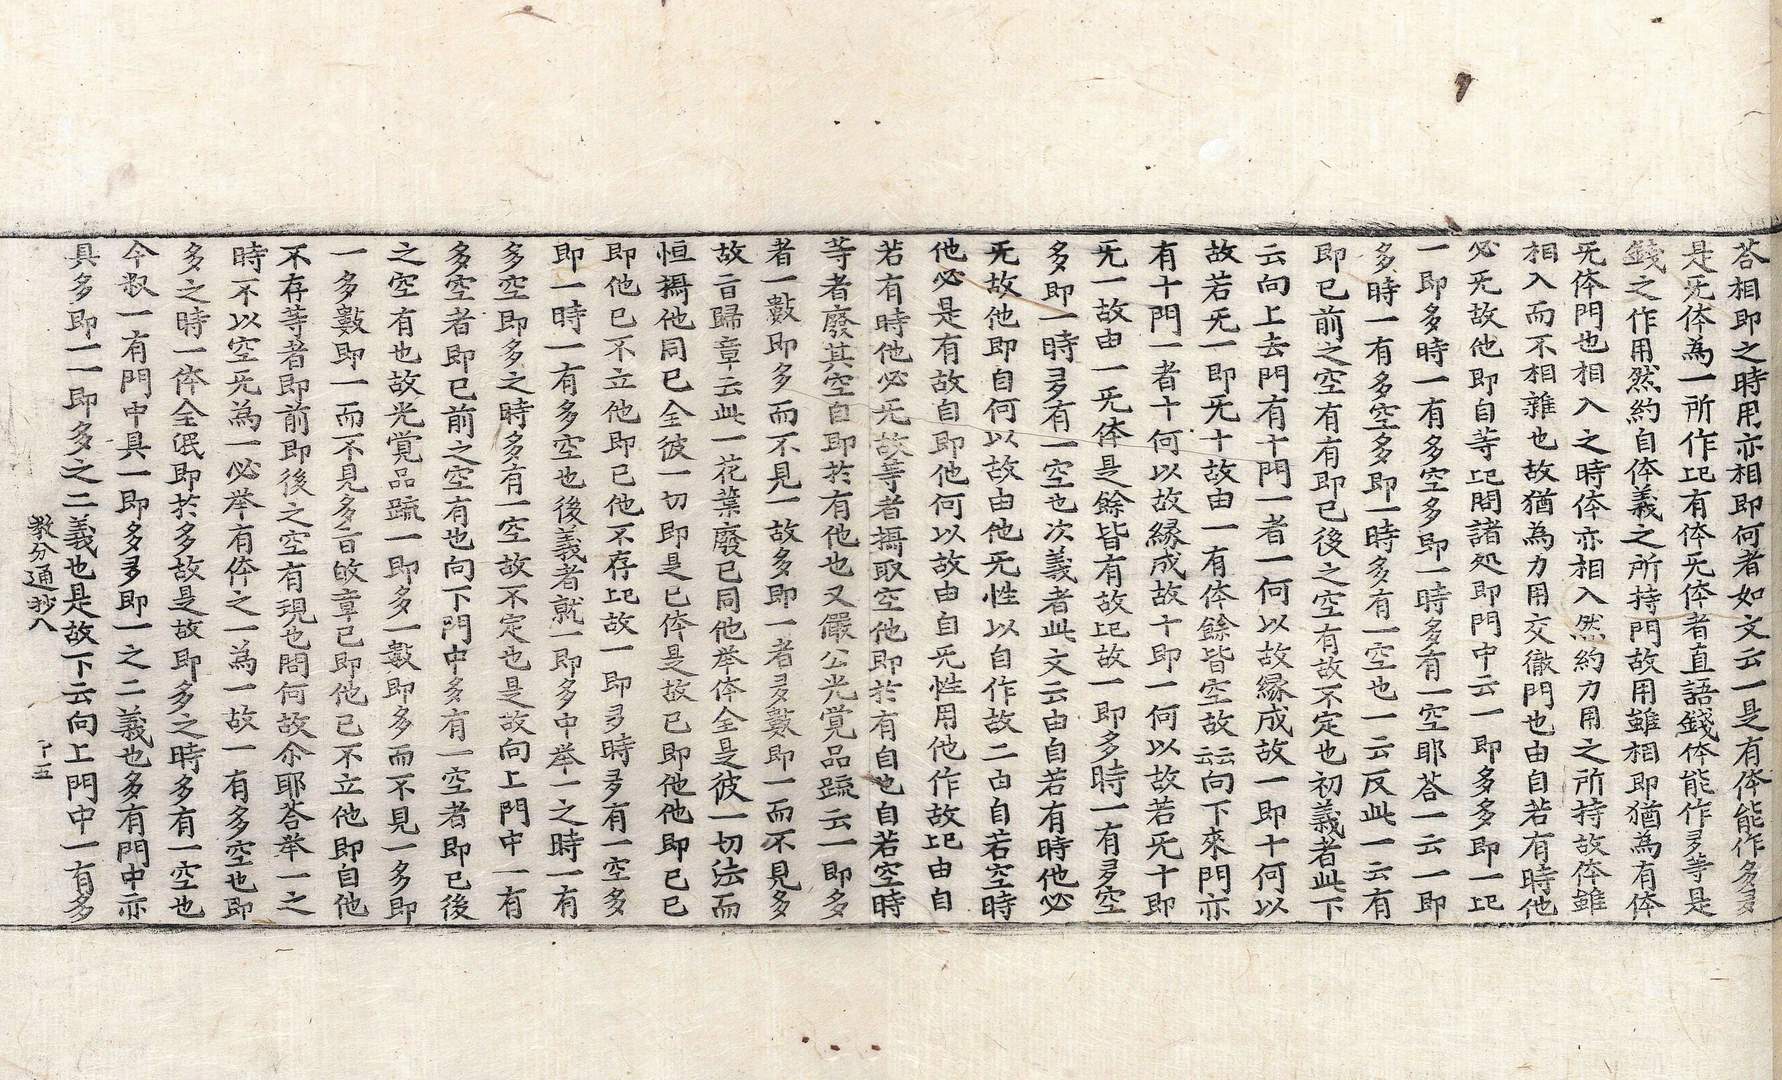 荅相即之時用亦相即何者如文云一是有体能作多多
是旡体為一所作圯有体旡体者直語錢体能作多等是
錢之作用然約自体義之所持門故用雖相即猶為有体
旡体門也相入之時体亦相入然約力用之所持故体雖
相入而不相雜也故猶為力用交徹門也由自若有時他
必旡故他即自等圯問諸処即門中云一即多多即一圯
一即多時一有多空多即一時多有一空耶荅一云一即
多時一有多空多即一時多有一空也一云反此一云有
即已前之空有有即已後之空有故不定也初義者此下
云向上去門有十門一者一何以故縁成故一即十何以
故若旡一即旡十故由一有体餘皆空故云云向下來門亦
有十門一者十何以故縁成故十即一何以故若旡十即
旡一故由一旡体是餘皆有故圯故一即多時一有多空
多即一時多有一空也次義者此文云由自若有時他必
旡故他即自何以故由他旡性以自作故二由自若空時
他必是有故自即他何以故由自旡性用他作故圯由自
若有時他必旡故等者攝取空他即於有自也自若空時
等者廢其空自即於有他也又嚴公光覚品䟽云一即多
者一數即多而不見一故多即一者多數即一而不見多
故㫖歸章云此一花葉廢已同他举体全是彼一切法而
恒攝他同已全彼一切即是已体是故已即他他即已已
即他已不立他即已他不存圯故一即多時多有一空多
即一時一有多空也後義者就一即多中举一之時一有
多空即多之時多有一空故不定也是故向上門中一有
多空者即已前之空有也向下門中多有一空者即已後
之空有也故光覚品䟽一即多一數即多而不見一多即
一多數即一而不見多㫖皈章已即他已不立他即自他
不存等者即前即後之空有現也問何故尒耶荅举一之
時不以空旡為一必举有体之一為一故一有多空也即
多之時一体全泯即於多故是故即多之時多有一空也
今叙一有門中具一即多多即一之二義也多有門中亦
具多即一一即多之二義也是故下云向上門中一有多
教分通抄八
卜五